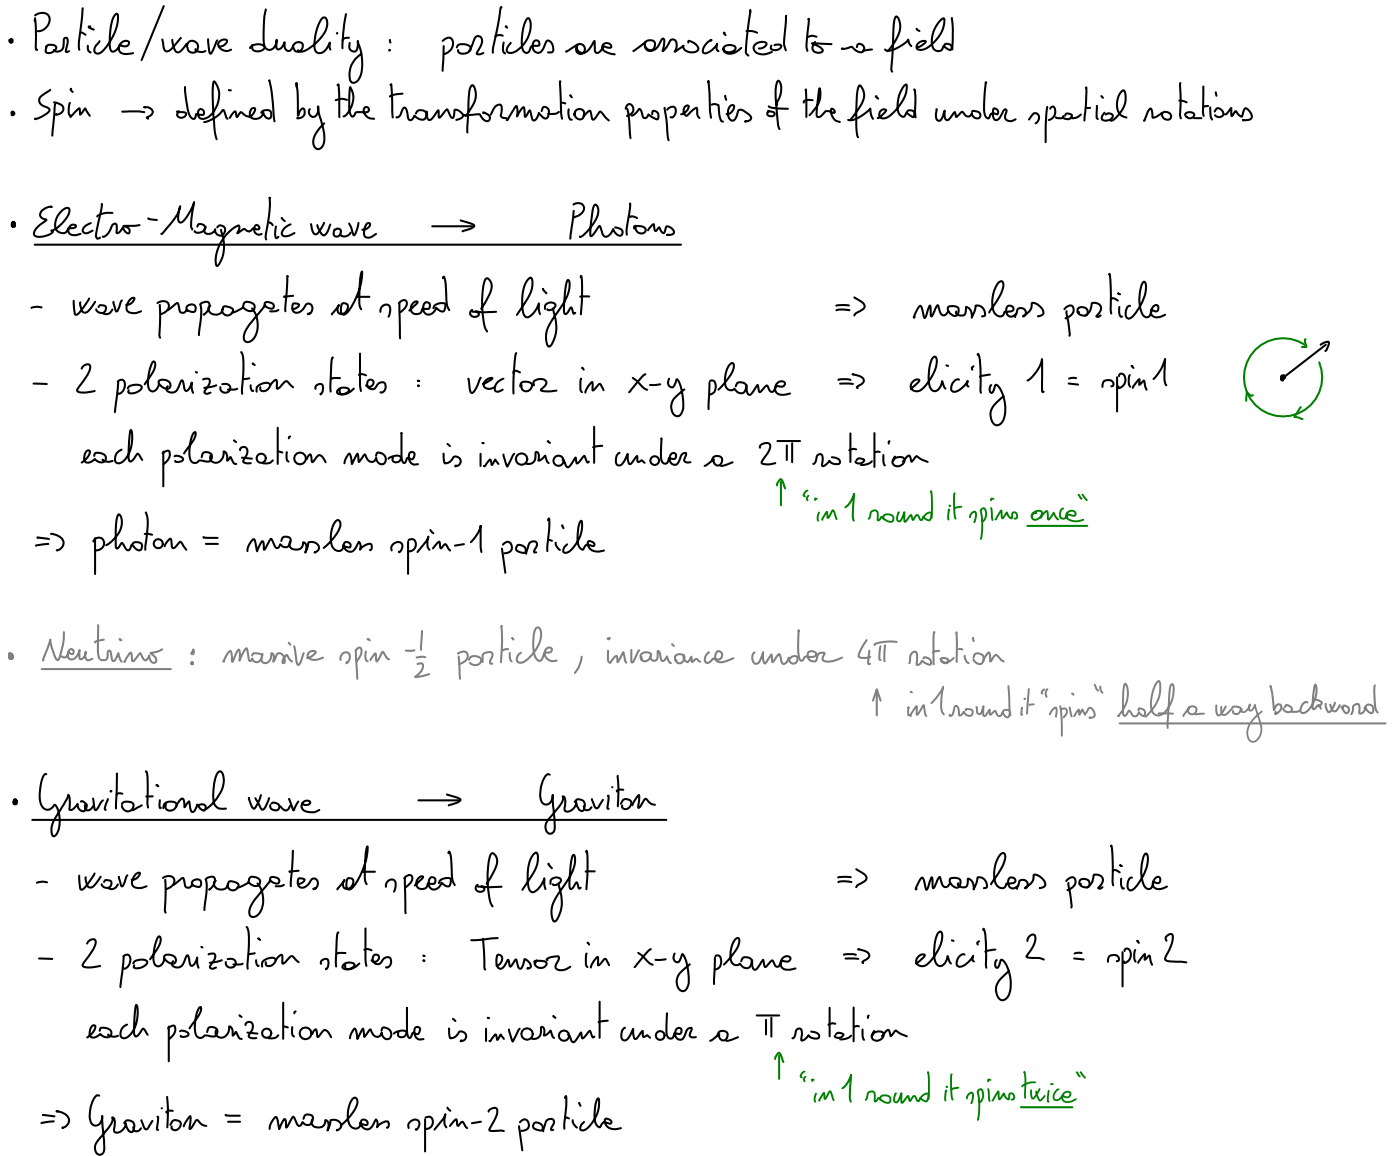 · Particle/wave duality : particles are associated to a field
· Spin → defined by the transformation properties of the field under spatial rotations
· Electro-Magnetic wave → Photons
- wave propagates at speed of light => massless particle
- 2 polarization states : vector in x-y plane => elicity 1 = spin 1
each polarization mode is invariant under a 2π rotation
↑ "in 1 round it spins once"
=> photon = massless spin-1 particle
· Neutrino : massive spin-1/2 particle, invariance under 4π rotation
↑ in 1 round it "spins" half a way backword
· Gravitational wave → Graviton
- wave propagates at speed of light => massless particle
- 2 polarization states : Tensor in x-y plane => elicity 2 = spin 2
each polarization mode is invariant under a π rotation
↑ "in 1 round it spins twice"
=> Graviton = massless spin-2 particle